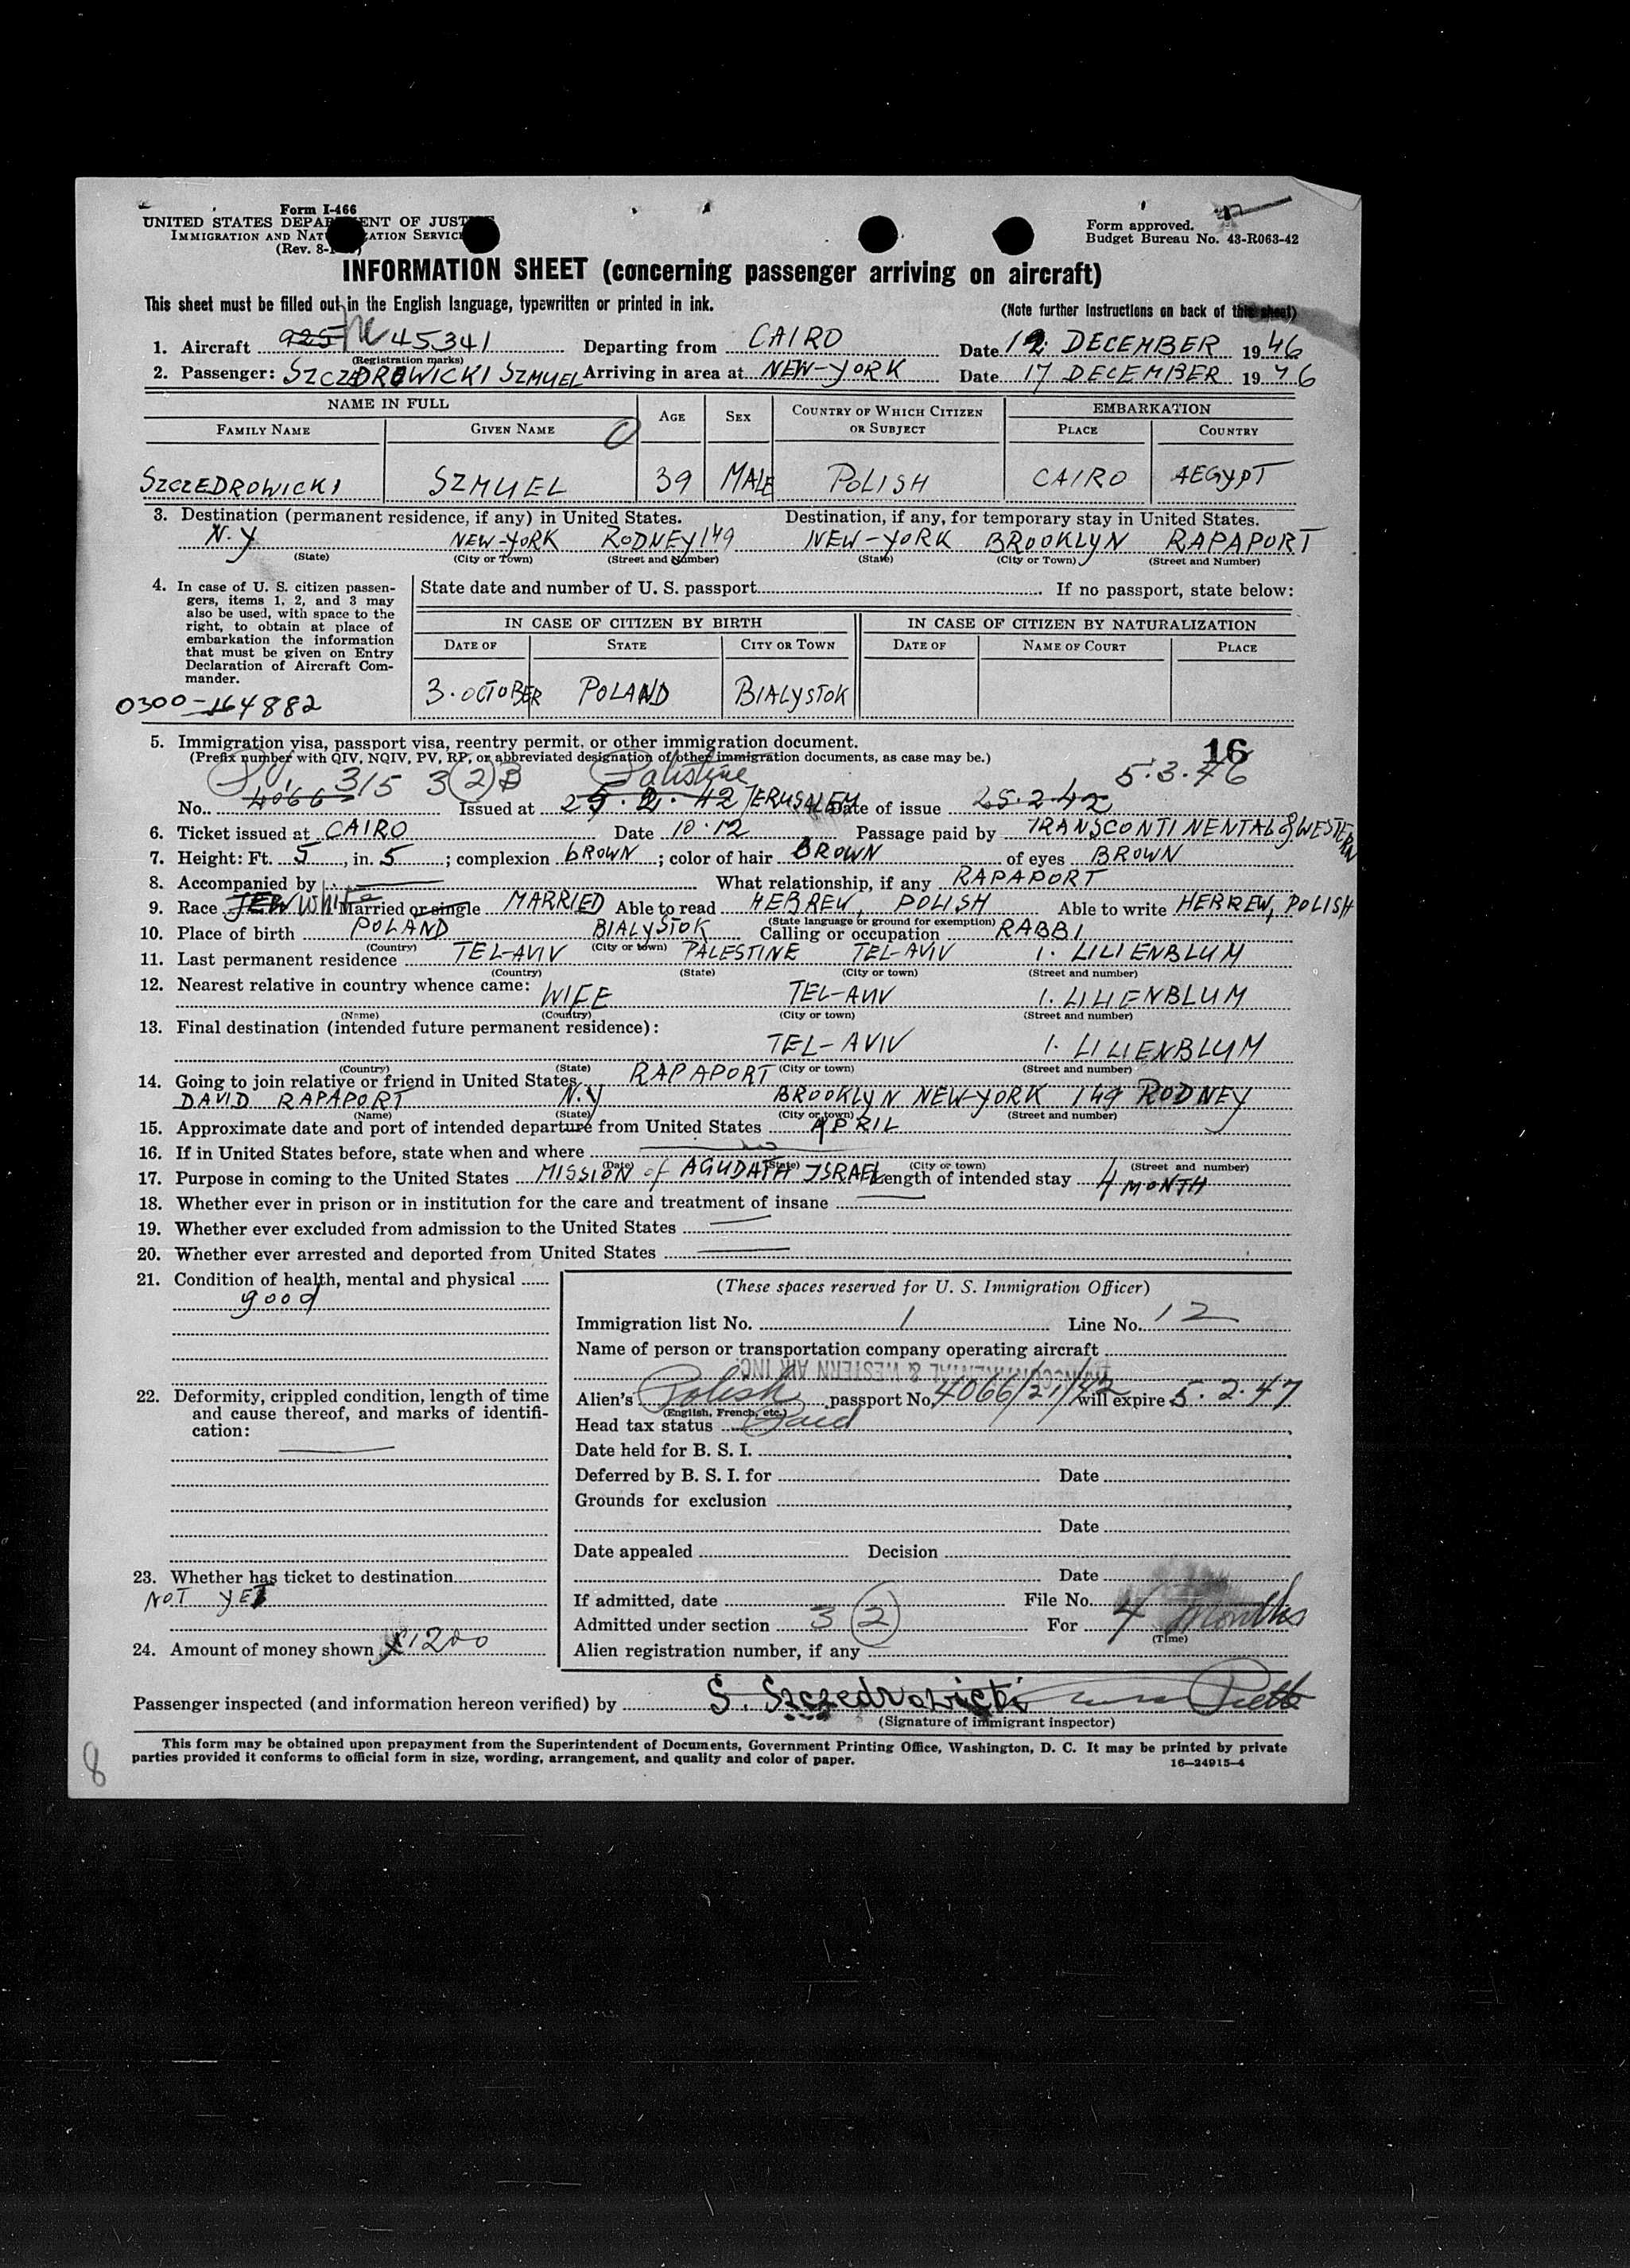 Form I-466
UNITED STATES DEPARTMENT OF JUSTICE
IMMIGRATION AND NATURALIZATION SERVICE
(Rev. 8-
Form approved.
Budget Bureau No. 43-R063-42
INFORMATION SHEET (concerning passenger arriving on aircraft)
This sheet must be filled out in the English language, typewritten or printed in ink.
(Note further instructions on back of this sheet)
1. Aircraft 925 NC 45341 Departing from CAIRO Date 12 DECEMBER 1946
(Registration marks)
2. Passenger: SZCZEDROWICKI SZMUEL Arriving in area at NEW-YORK Date 17 DECEMBER 1946
NAME IN FULL AGE SEX COUNTRY OF WHICH CITIZEN OR SUBJECT EMBARKATION
FAMILY NAME GIVEN NAME PLACE COUNTRY
SZCZEDROWICKI SZMUEL 39 MALE POLISH CAIRO AEGYPT
3. Destination (permanent residence, if any) in United States. Destination, if any, for temporary stay in United States.
N.Y NEW-YORK RODNEY 149 NEW-YORK BROOKLYN RAPAPORT
(State) (City or Town) (Street and Number) (State) (City or Town) (Street and Number)
4. In case of U. S. citizen passengers, items 1, 2, and 3 may
also be used, with space to the
right, to obtain at place of
embarkation the information
that must be given on Entry
Declaration of Aircraft Commander.
0300-164882
State date and number of U. S. passport If no passport, state below:
IN CASE OF CITIZEN BY BIRTH IN CASE OF CITIZEN BY NATURALIZATION
DATE OF STATE CITY OR TOWN DATE OF NAME OF COURT PLACE
3. OCTOBER POLAND BIALYSTOK
5. Immigration visa, passport visa, reentry permit, or other immigration document.
(Prefix number with QIV, NQIV, PV, RP, or abbreviated designation of other immigration documents, as case may be.)
16
PV 315 3(2)B Palestine 5.3.46
No. 4066 Issued at 25.2.42 JERUSALEM Date of issue 25.2.42
6. Ticket issued at CAIRO Date 10.12 Passage paid by TRANSCONTINENTAL & WESTERN
7. Height: Ft. 5, in. 5; complexion BROWN; color of hair BROWN of eyes BROWN
8. Accompanied by What relationship, if any RAPAPORT
9. Race JEW White Married or single MARRIED Able to read HEBREW, POLISH Able to write HEBREW, POLISH
(State language or ground for exemption)
10. Place of birth POLAND BIALYSTOK Calling or occupation RABBI
(Country) (City or town)
11. Last permanent residence TEL-AVIV PALESTINE TEL-AVIV 1. LILIENBLUM
(Country) (State) (City or town) (Street and number)
12. Nearest relative in country whence came: WIFE TEL-AVIV 1. LILIENBLUM
(Name) (Country) (City or town) (Street and number)
13. Final destination (intended future permanent residence):
TEL-AVIV 1. LILIENBLUM
(Country) (State) (City or town) (Street and number)
14. Going to join relative or friend in United States RAPAPORT
DAVID RAPAPORT N.Y BROOKLYN NEW-YORK 149 RODNEY
(Name) (State) (City or town) (Street and number)
15. Approximate date and port of intended departure from United States APRIL
16. If in United States before, state when and where no
(Date) (State) (City or town) (Street and number)
17. Purpose in coming to the United States MISSION of AGUDATH ISRAEL Length of intended stay 4 MONTH
18. Whether ever in prison or in institution for the care and treatment of insane
19. Whether ever excluded from admission to the United States
20. Whether ever arrested and deported from United States
21. Condition of health, mental and physical
good
22. Deformity, crippled condition, length of time
and cause thereof, and marks of identification:
23. Whether has ticket to destination
NOT YET
24. Amount of money shown $1200
(These spaces reserved for U. S. Immigration Officer)
Immigration list No. 1 Line No. 12
Name of person or transportation company operating aircraft
TRANSCONTINENTAL & WESTERN AIR INC.
Alien's Polish passport No. 4066/21/42 will expire 5.2.47
(English, French, etc.)
Head tax status Paid
Date held for B. S. I.
Deferred by B. S. I. for Date
Grounds for exclusion
Date
Date appealed Decision
Date
If admitted, date File No.
Admitted under section 3 (2) For 4 Months
(Time)
Alien registration number, if any
Passenger inspected (and information hereon verified) by S. Szczedrowicki
(Signature of immigrant inspector)
This form may be obtained upon prepayment from the Superintendent of Documents, Government Printing Office, Washington, D. C. It may be printed by private
parties provided it conforms to official form in size, wording, arrangement, and quality and color of paper.
16—24915-4
8